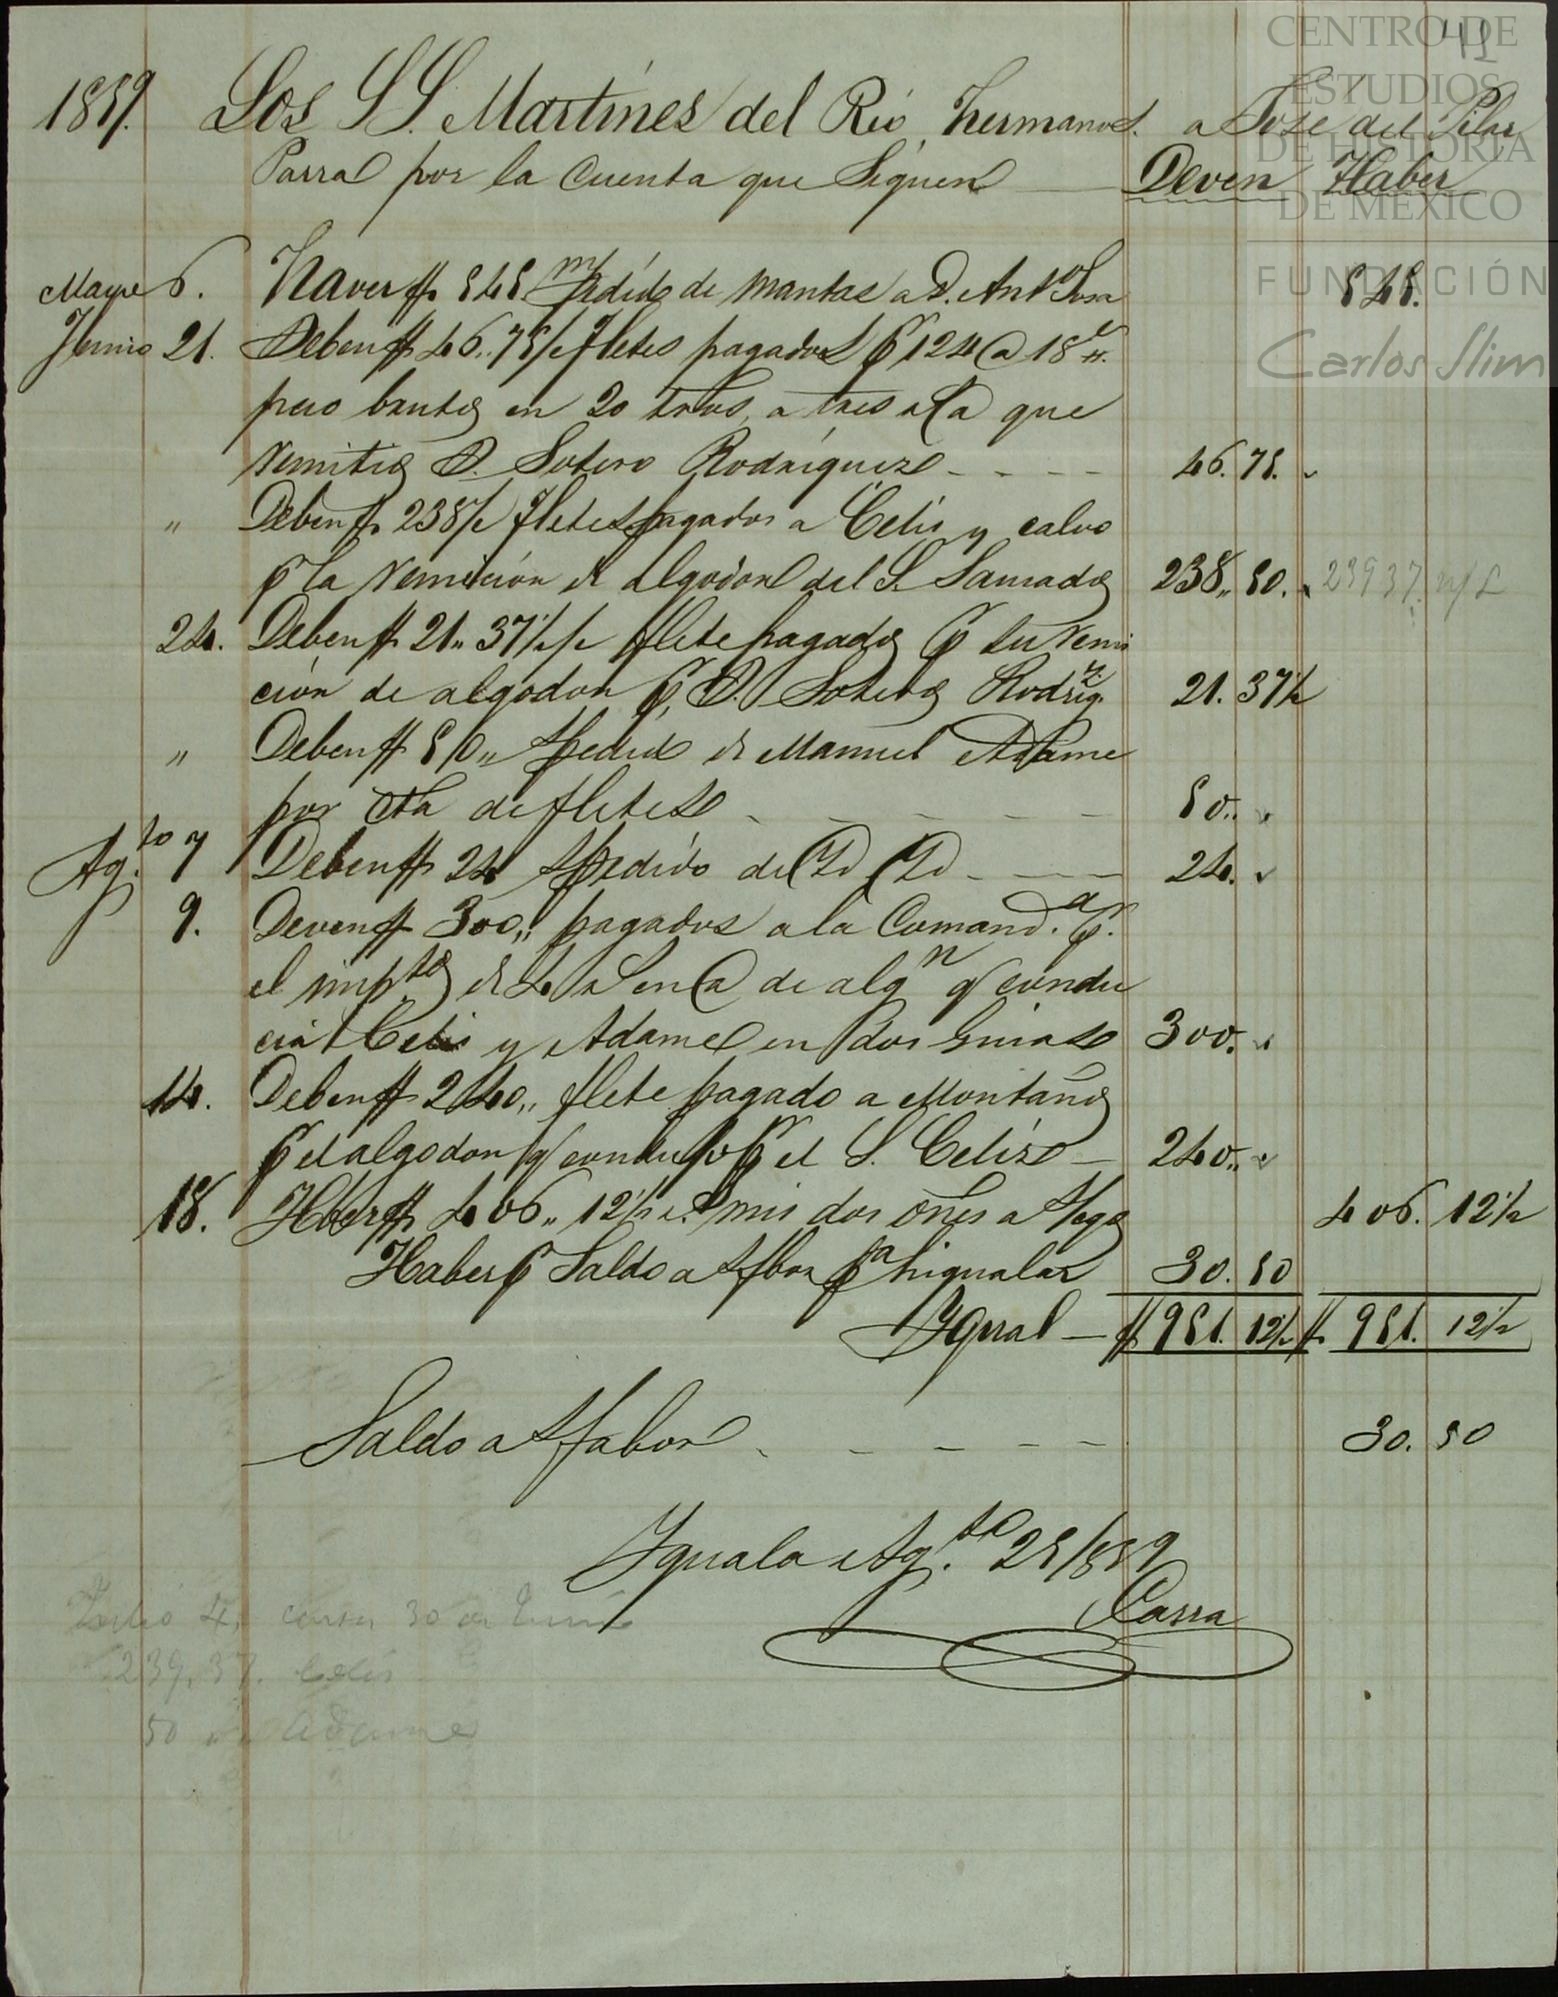 42
CENTRO DE
ESTUDIOS
DE HISTORIA
DE MÉXICO
FUNDACIÓN
Carlos Slim
1859. Los S.S. Martines del Rio, hermanos. a José del Pilar
Parra por la cuenta que Siguen Deven Haber
Mayo 6. Haver $ 545 pedido de mantas a D. Ant.o Sosa 545.
Junio 21. Deben $ 46.. 75 fletes pagados p.r 124 @ 18
peso bruto en 20 a que
remitio D. Sotero Rodriguez 46. 75.
" Deben $ 238 fletes pagados a Celis y calvo
p la remición de algodon del S. Saurado 238.. 50. 239 37
24. Deben $ 21.. 37 1/2 flete pagado p su remi
ción de algodon p.r D. Sotero Rodrig.z 21. 37 1/2
" Deben $ 50.. pedido de Manuel Adame
por cta de fletes 50..
Ag.to 7 Deben $ 24 pedido de 24.
9. Deven $ 300.. pagados a la Comand.a p.r
el imp.to de de alg.n q condu
cia Celis y Adame en dos Guias 300.
14. Deben $ 240.. flete pagado a Montaño
p.r el algodon q condujo p.r el S. Celis 240..
18. Haber $ 406.. 12 1/2 mis dos 406. 12 1/2
Haber p.r Saldo a fbor p.a higualar 30. 50
Ygual $ 951. 12 1/2 $ 951. 12 1/2
Saldo a fabor 30. 50
Yguala Ag.to 25/859
Parra
Julio 4. carta 30 de Junio
239.37. Celis
50 Adame